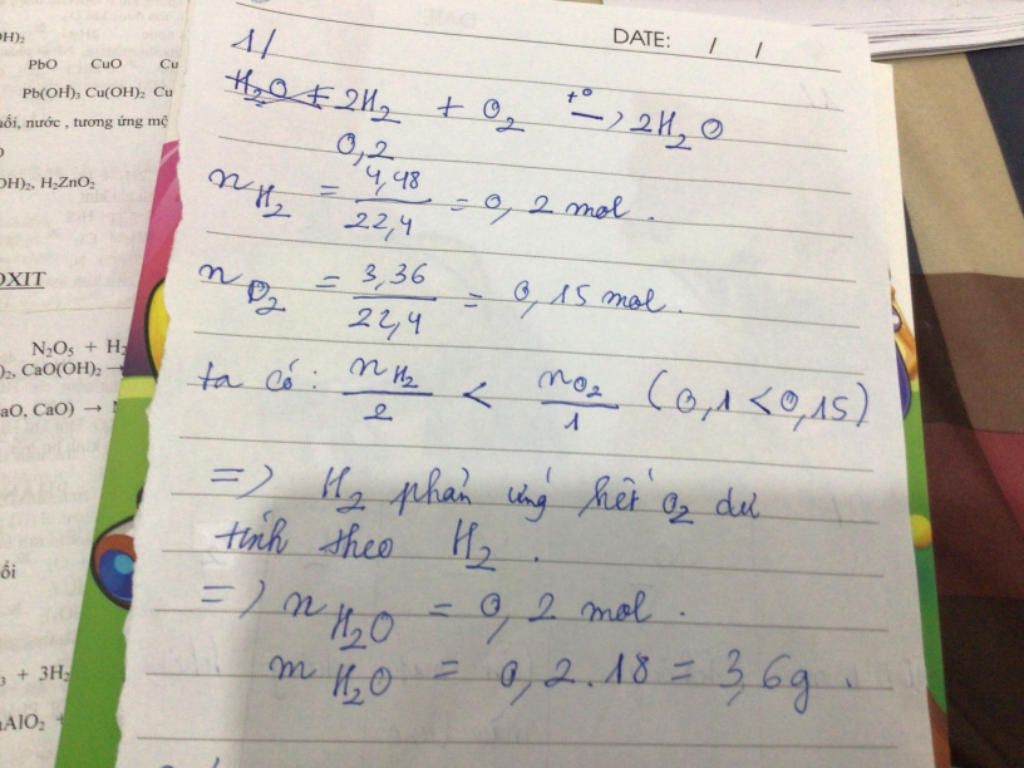 OH)₂
PbO CuO Cu
Pb(OH)₃ Cu(OH)₂ Cu
uối, nước , tương ứng mê
OH)₂, H₂ZnO₂
OXIT
N₂O₅ + H₂
)₂, CaO(OH)₂ →
aO, CaO) →
ồi
₃ + 3H₂
aAlO₂ +
DATE: / /
1/
H₂O + 2H₂ + O₂ t° → 2H₂O
0,2
n H₂ = 4,48 / 22,4 = 0,2 mol.
n O₂ = 3,36 / 22,4 = 0,15 mol.
ta có: n H₂ / 2 < n O₂ / 1 (0,1 < 0,15)
=> H₂ phản ứng hết O₂ dư
tính theo H₂.
=> n H₂O = 0,2 mol.
m H₂O = 0,2.18 = 3,6g.